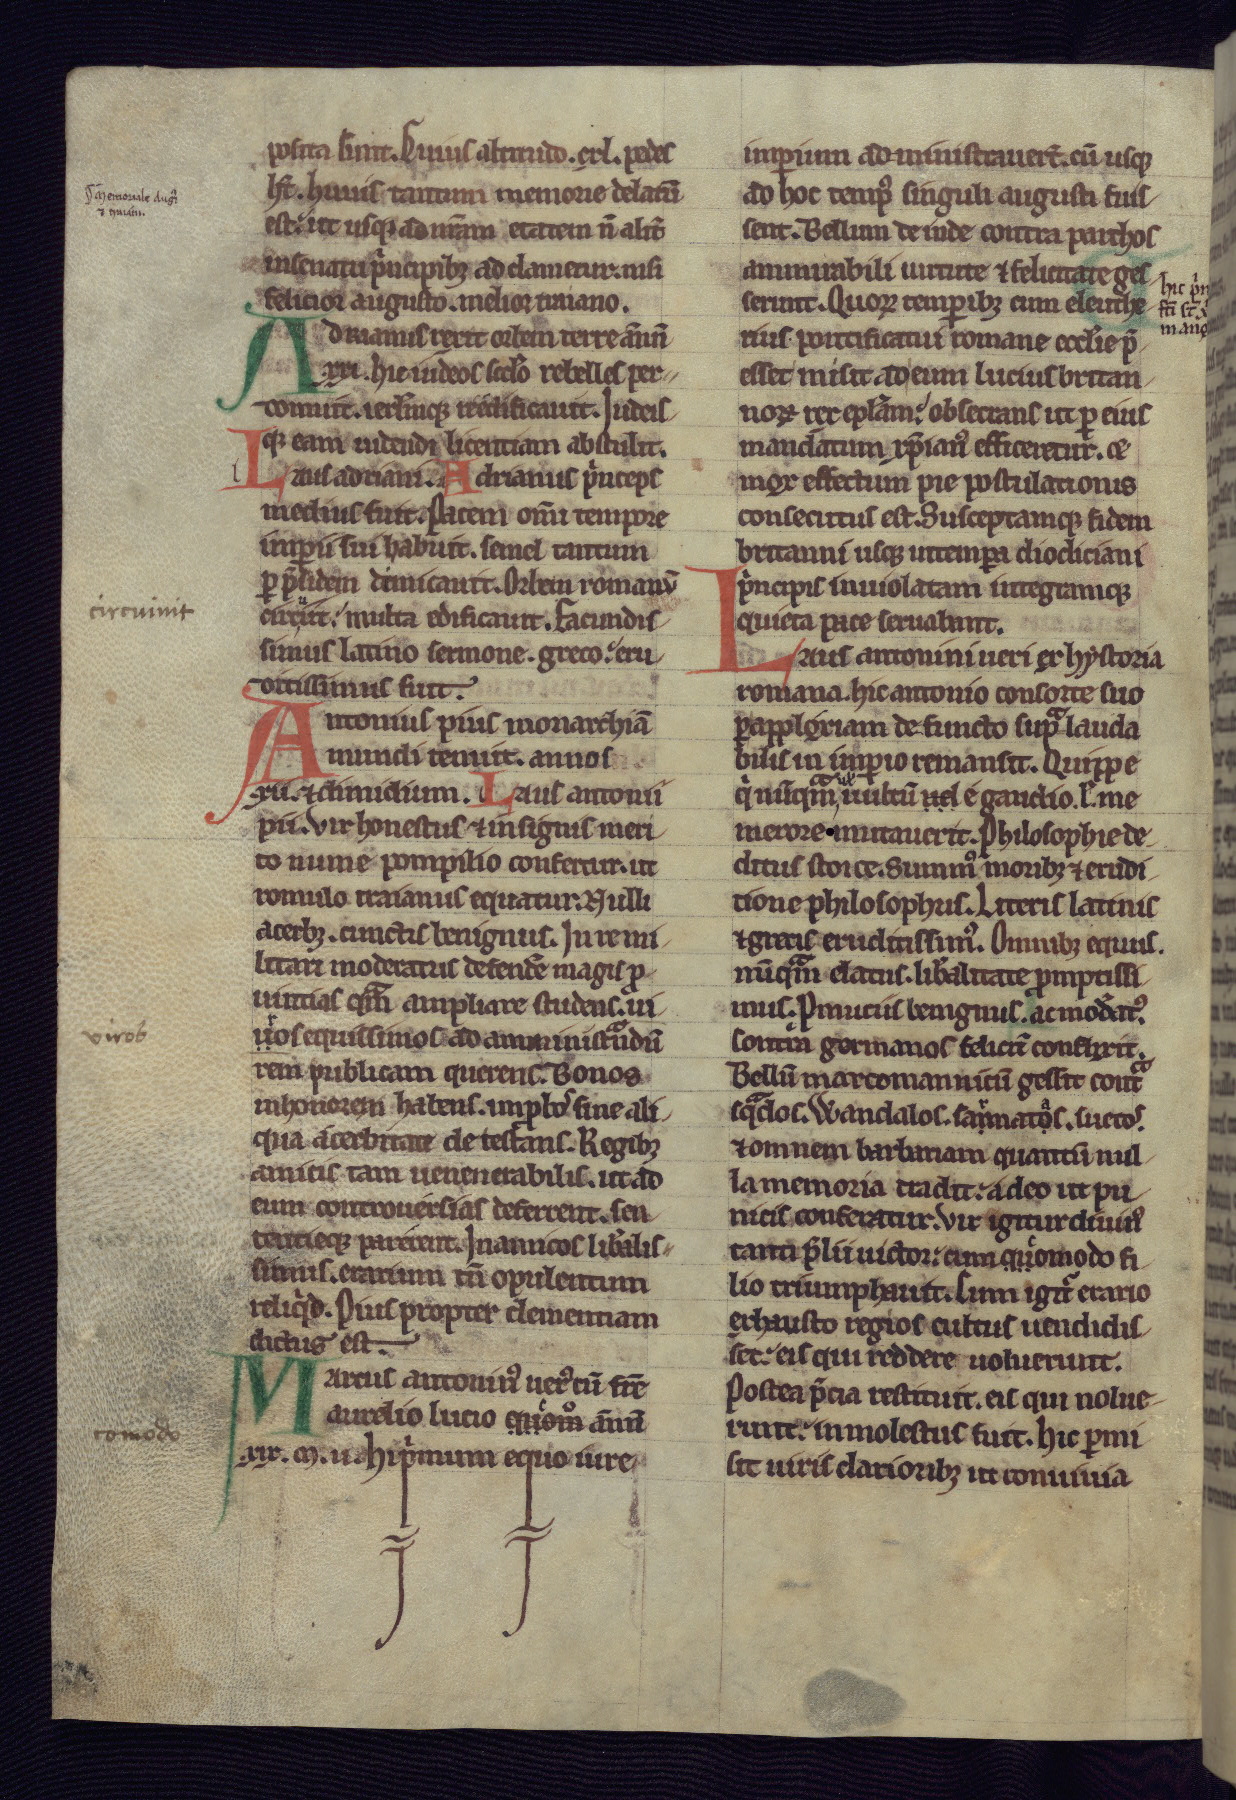 posita sunt. Huius altitudo .cxl. pedes
hr̄. huius tantum memorie delatū
est: ut usq; ad nr̄am etatem n̄ alit̄
in senatu p̄ncipibꝫ adclametur. nisi
felicior augusto. melior traiano.
Adrianus rexit orbem terre ānū
.xxi. hic iudeos scd̄o rebelles per-
domuit. ierl̄mq; reedificauit. Iudeis
q; eam uidendi licentiam abstulit.
Laus adriani. Adrianus p̄nceps
medius fuit. Pacem om̄i tempore
imperii sui habuit. semel tantum
ꝑ p̄sidem dimicauit. Orbem romanū
circuit. multa edificauit. Facundis
simus latino sermone. greco: eru
ditissimus fuit.
Antonius pius monarchiā
mundi tenuit. annos
.xxii. & dimidium. Laus antonii
pii. Vir honestus & insignis meri
to nume pompilio confertur. ut
romulo traianus equatur. Nulli
acerbꝫ. cunctis benignus. In re mi
litari moderatus defendē magis ꝓ
uintias qm̄ ampliare studens. ui
uos equissimos ad amministrādū
rem publicam querens. Bonos
in honorem habens. imp̄bos sine ali
qua acerbitate detestans. Regibꝫ
amicis tam uenenerabilis. ut ad
eum controuersias deferrent. sen
tentieq; parerent. In amicos lib̄alis-
simus. erarium tn̄ opulentum
reliq̄d. Pius propter clementiam
dictus est.
Marcus antonin⁹ uer⁹ cū fr̄e
aurelio lucio quōm̊ ānū
.xix. m. ii. hi p̄mum equo iure
imperium administrauert̄. cū usq;
ad hoc temp⁹ singuli augusti fuis
sent. Bellum deinde contra parthos
ammirabili uirtute & felicitate ges
serunt. Quoꝝ temporibꝫ cum eleuthe
rius pontificatui romane eccl̄ie p̄
esset misit ad eum lucius britan
noꝝ rex epl̄am: obsecrans ut ꝑ eius
mandatum xp̄ian⁹ efficeretur.
mox effectum pie postulationis
consecutus est. Susceptamq; fidem
britanni usq; in tempora diocliciani
p̄ncipis inuiolatam integramq;
quieta pace seruabant.
Laus antonini ueri ex hystoria
romana. hic antonio consorte suo
ꝑ applexiam defuncto sup̄ lauda
bilis in imperio remansit. Quippe
q̄ nūqm̄ uultū uel e gaudio. l̄ me
merore mutauerit. Philosophie de
ditus stoice. Summ⁹ moribꝫ & erudi
tione philosophus. Literis latinis
& grecis eruditissim⁹. Omnibꝫ equus.
nūqm̄ elatus. lib̄alitate ꝓmptissi
mus. Prouitiis benignus. ac moderat⁹.
Contra germanos felicit̄ conflixit.
Bellū marcomannicū gessit contra
sq̄dos. Wandalos. sarmatas. sueuos.
& omnem barbariam quantū nul
la memoria tradit: adeo ut pu
nicis conferatur. Vir igitur diuin⁹
tanti p̄lii uictor: cum quōmodo fi
lio triumphauit. Cum igit̄ erario
exhausto regios cultus uendidis
set: eis qui reddere uoluerunt.
Postea p̄cia restituit. eis qui nolue
runt: inmolestus fuit. Hic ꝑmi
sit uiris clarioribꝫ ut conuiuia
circuinit
viros
comodo